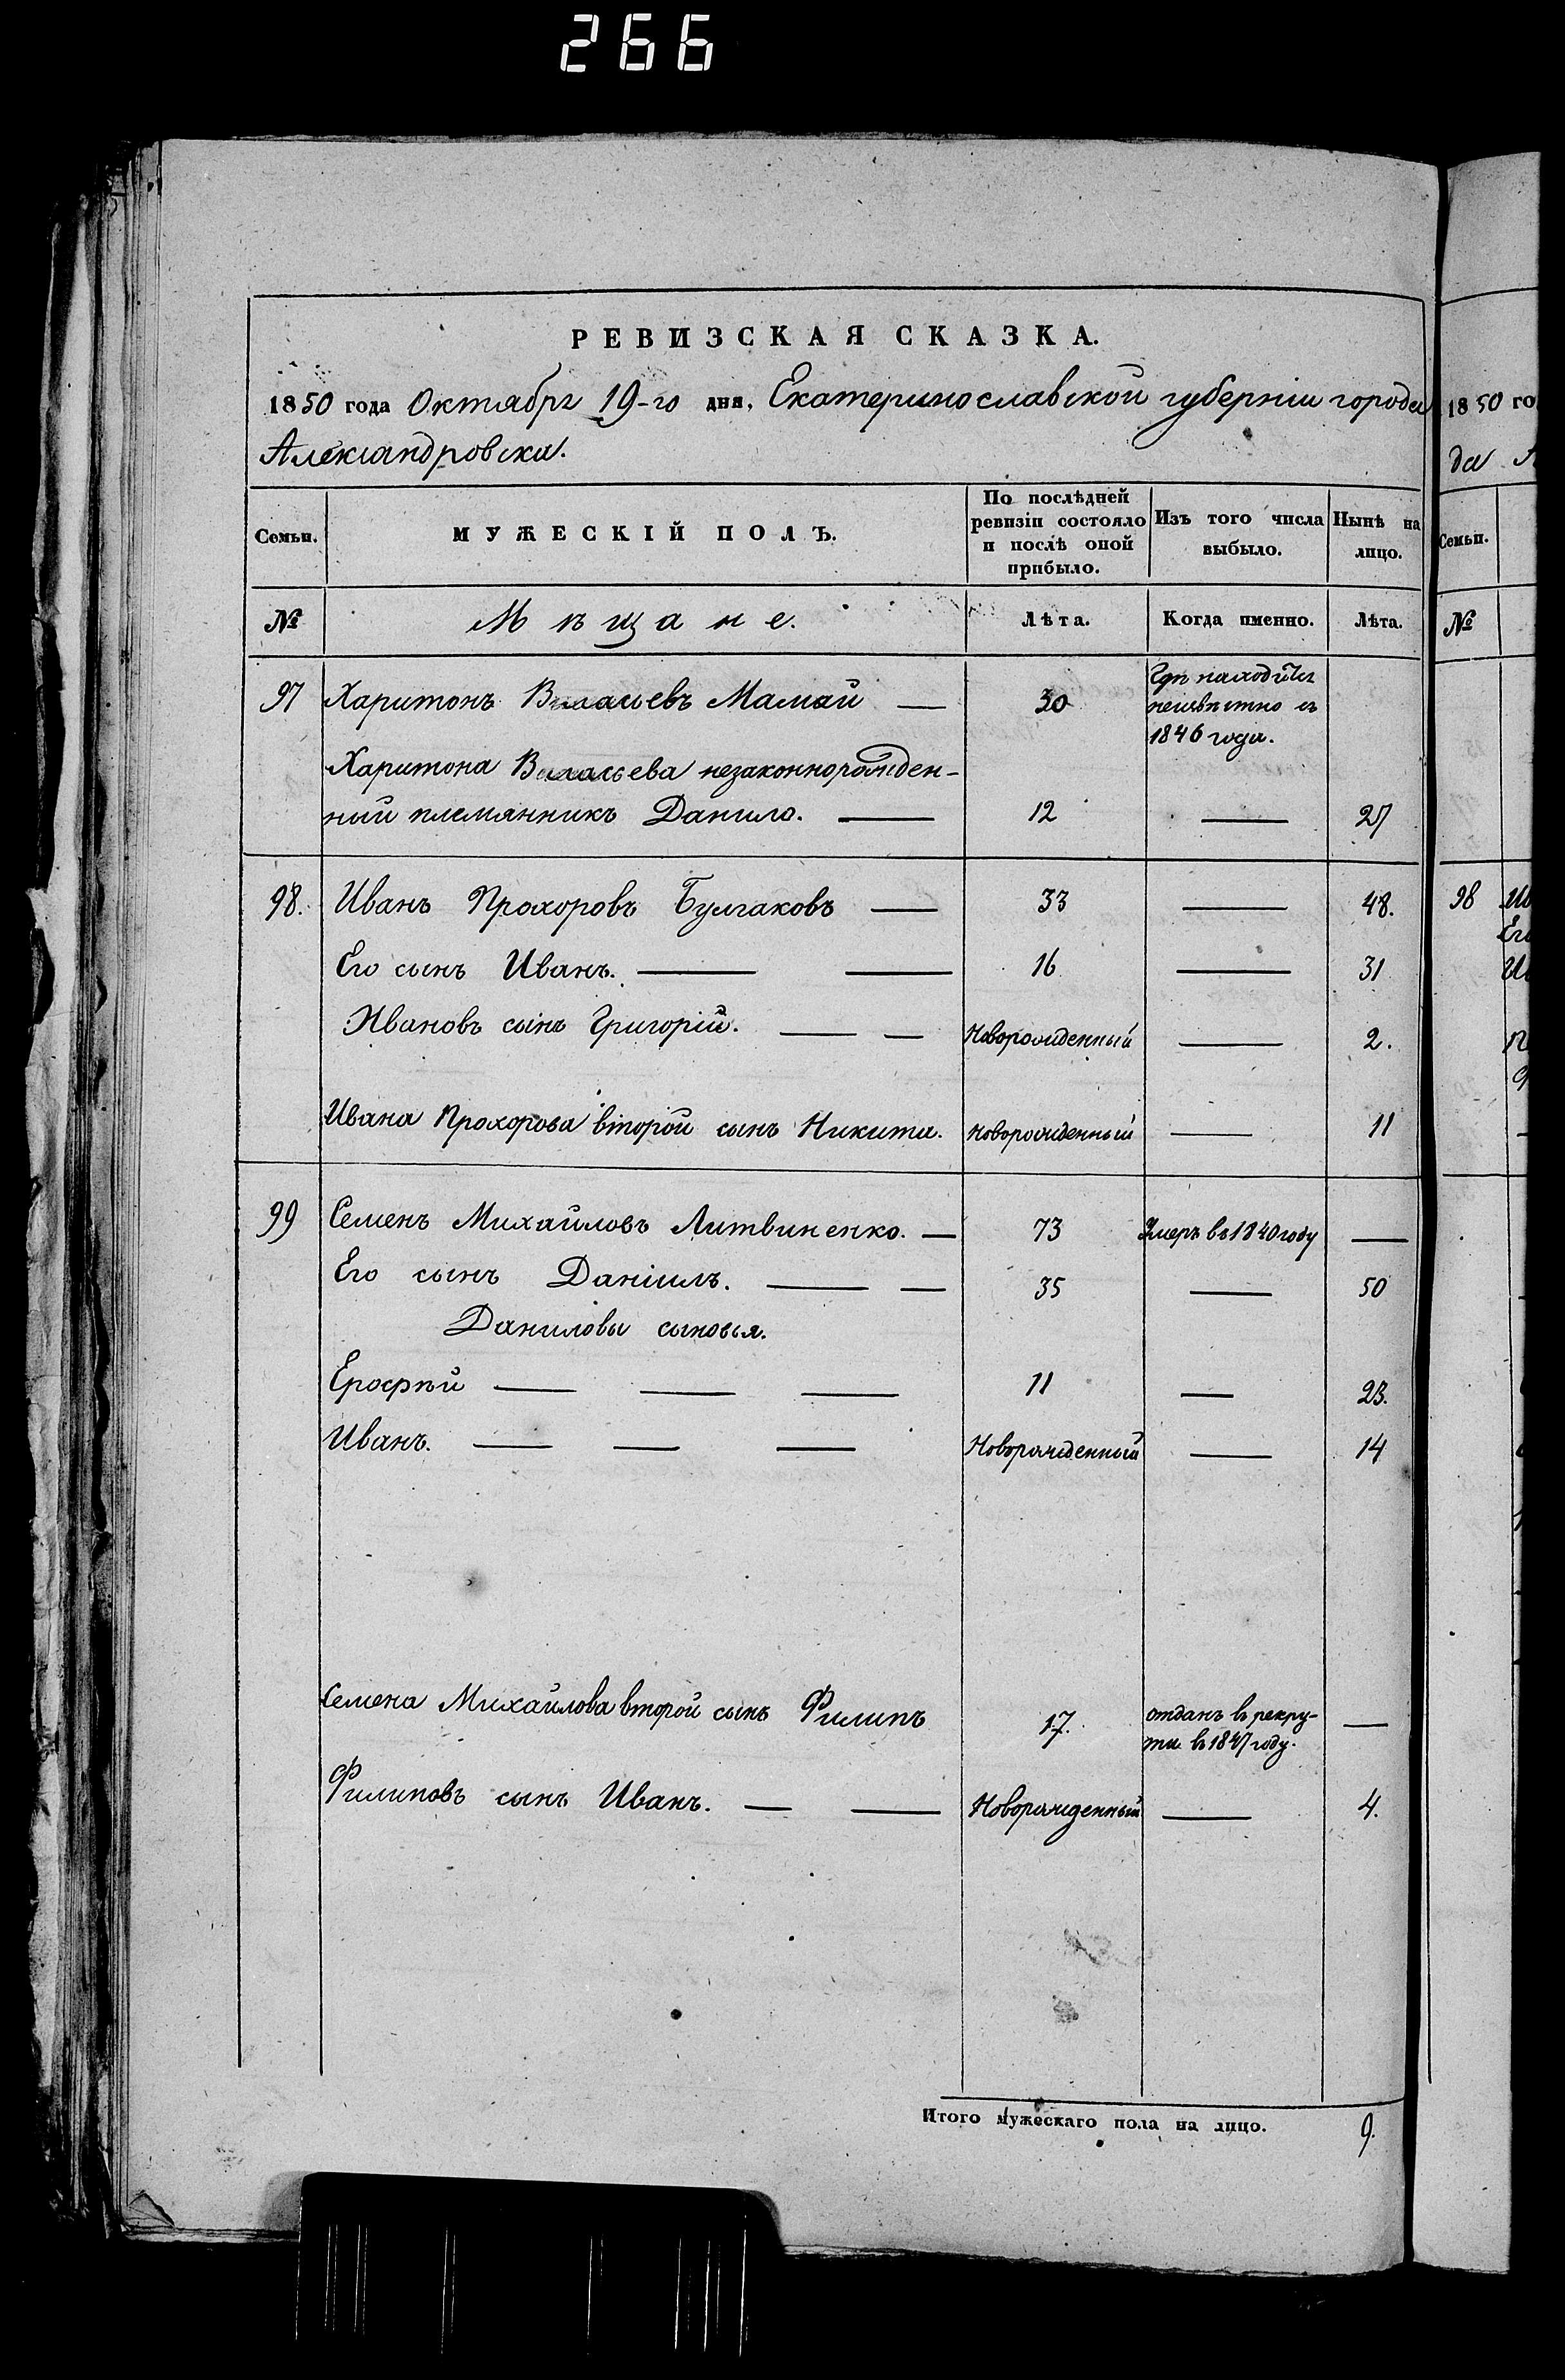 266
РЕВИЗСКАЯ СКАЗКА.
1850 года Октября 19-го дня, Екатеринославской губерніи города
Александровска.
Семьи. МУЖЕСКІЙ ПОЛЪ. По послѣдней ревизіи состояло и послѣ оной прибыло. Изъ того числа выбыло. Нынѣ на лицо.
№ Мѣщане. Лѣта. Когда именно. Лѣта.
97 Харитонъ Мамай — 30 Гдѣ находится неизвѣстно съ 1846 года.
Харитона незаконнорожден-
ный племянникъ Данило. — 12 — 27
98. Иванъ Прохоровъ Булгаковъ — 33 — 48.
Его сынъ Иванъ. — — 16 — 31
Ивановъ сынъ Григорій. — — Новорожденный — 2.
Ивана Прохорова второй сынъ Никита. Новорожденный — 11
99 Семенъ Михайловъ Литвиненко. — 73 Умеръ въ 1840 году —
Его сынъ Даніилъ. — — 35 — 50
Даниловы сыновья.
Ерофѣй — — — 11 — 23.
Иванъ. — — — Новорожденный — 14
Семена Михайлова второй сынъ Филипъ 17. отданъ въ рекру-
ты въ 1847 году. —
Филиповъ сынъ Иванъ. — — Новорожденный — 4.
Итого мужескаго пола на лицо. 9.
1850 го
да А
Семьи.
№
98 Ив
Его